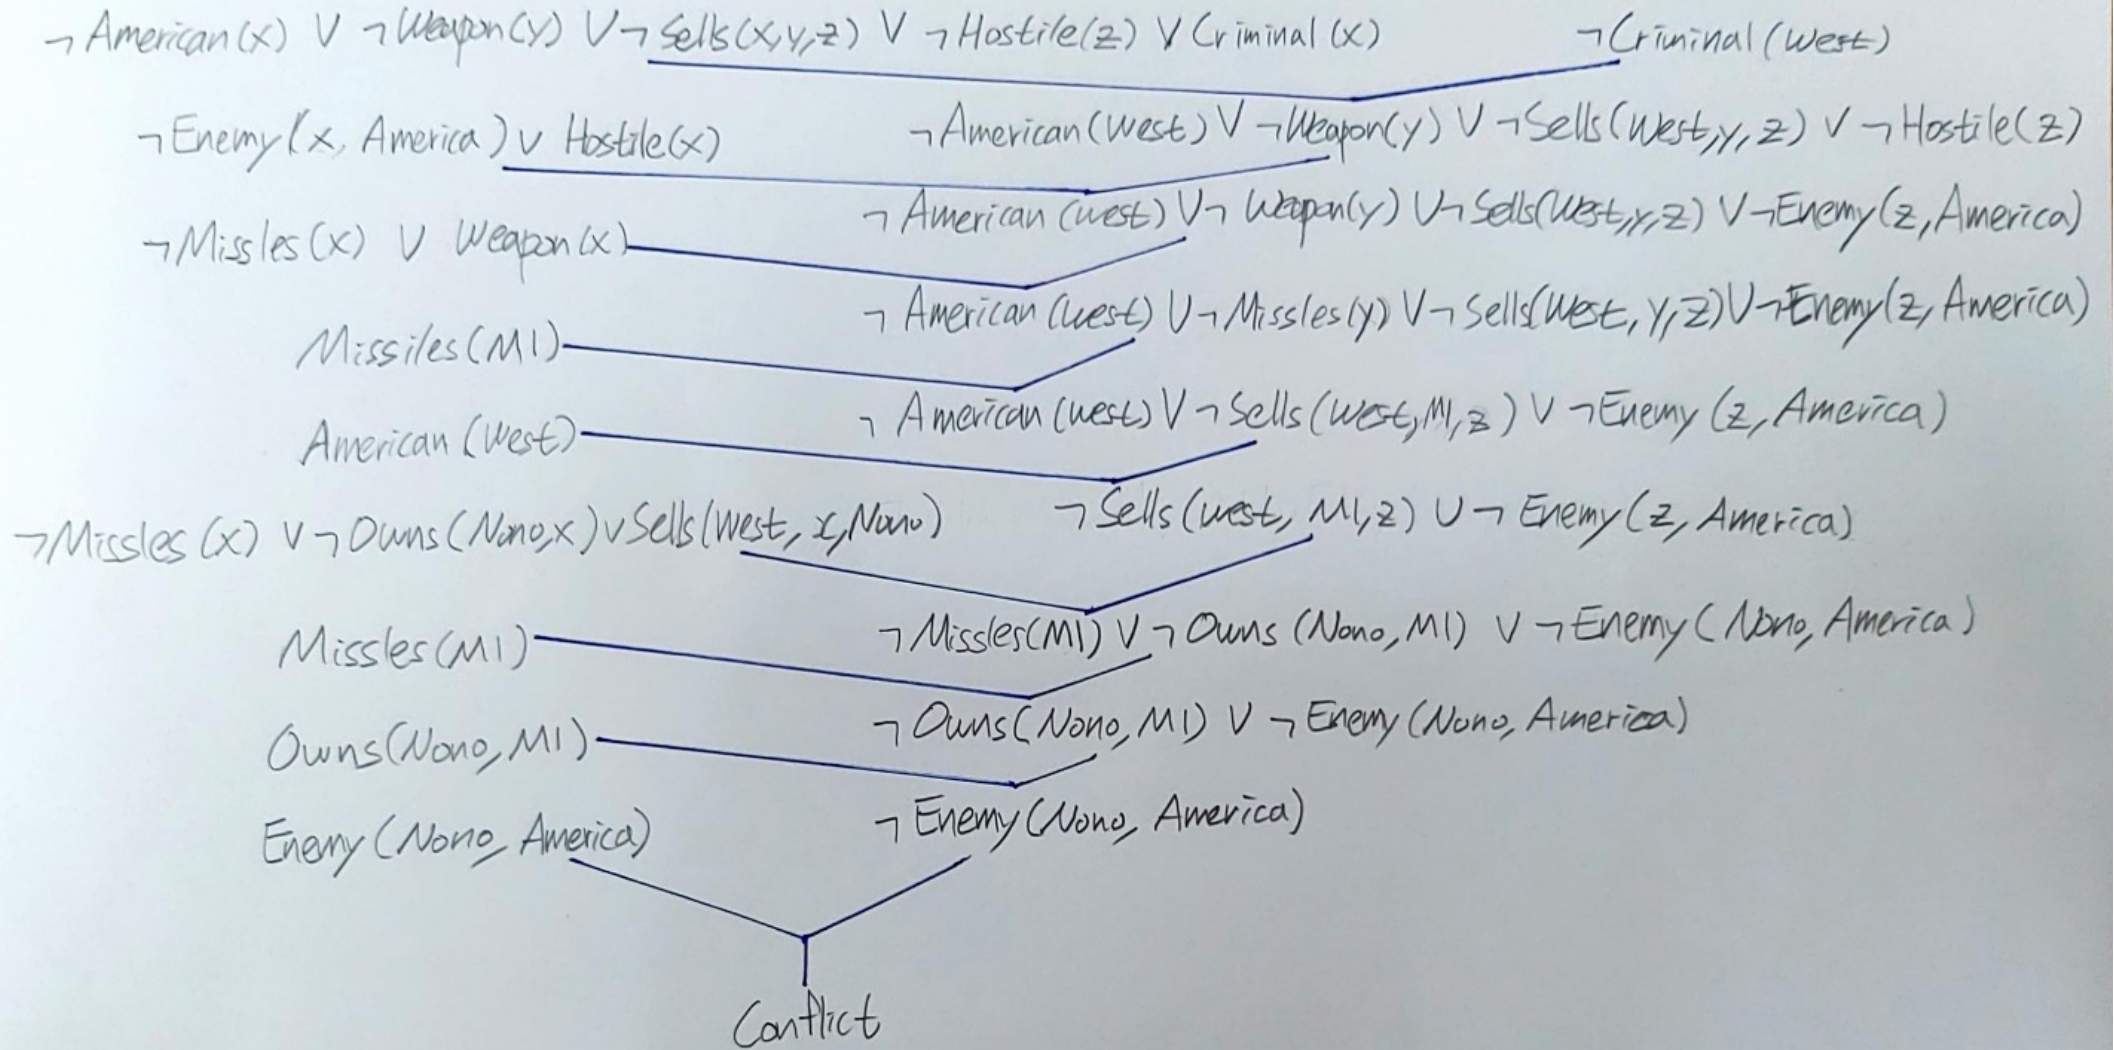 ¬American(x) ∨ ¬Weapon(y) ∨ ¬Sells(x,y,z) ∨ ¬Hostile(z) ∨ Criminal(x) ¬Criminal(West)
¬Enemy(x, America) ∨ Hostile(x) ¬American(West) ∨ ¬Weapon(y) ∨ ¬Sells(West,y,z) ∨ ¬Hostile(z)
¬American(west) ∨ ¬Weapon(y) ∨ ¬Sells(West,y,z) ∨ ¬Enemy(z,America)
¬Missles(x) ∨ Weapon(x)
¬American(west) ∨ ¬Missles(y) ∨ ¬Sells(West,y,z) ∨ ¬Enemy(z,America)
Missiles(M1)
¬American(west) ∨ ¬Sells(west,M1,z) ∨ ¬Enemy(z,America)
American(West)
¬Missles(x) ∨ ¬Owns(Nono,x) ∨ Sells(West,x,Nono) ¬Sells(west,M1,z) ∨ ¬Enemy(z,America)
Missles(M1) ¬Missles(M1) ∨ ¬Owns(Nono,M1) ∨ ¬Enemy(Nono,America)
Owns(Nono,M1) ¬Owns(Nono,M1) ∨ ¬Enemy(Nono,America)
Enemy(Nono,America) ¬Enemy(Nono,America)
Conflict